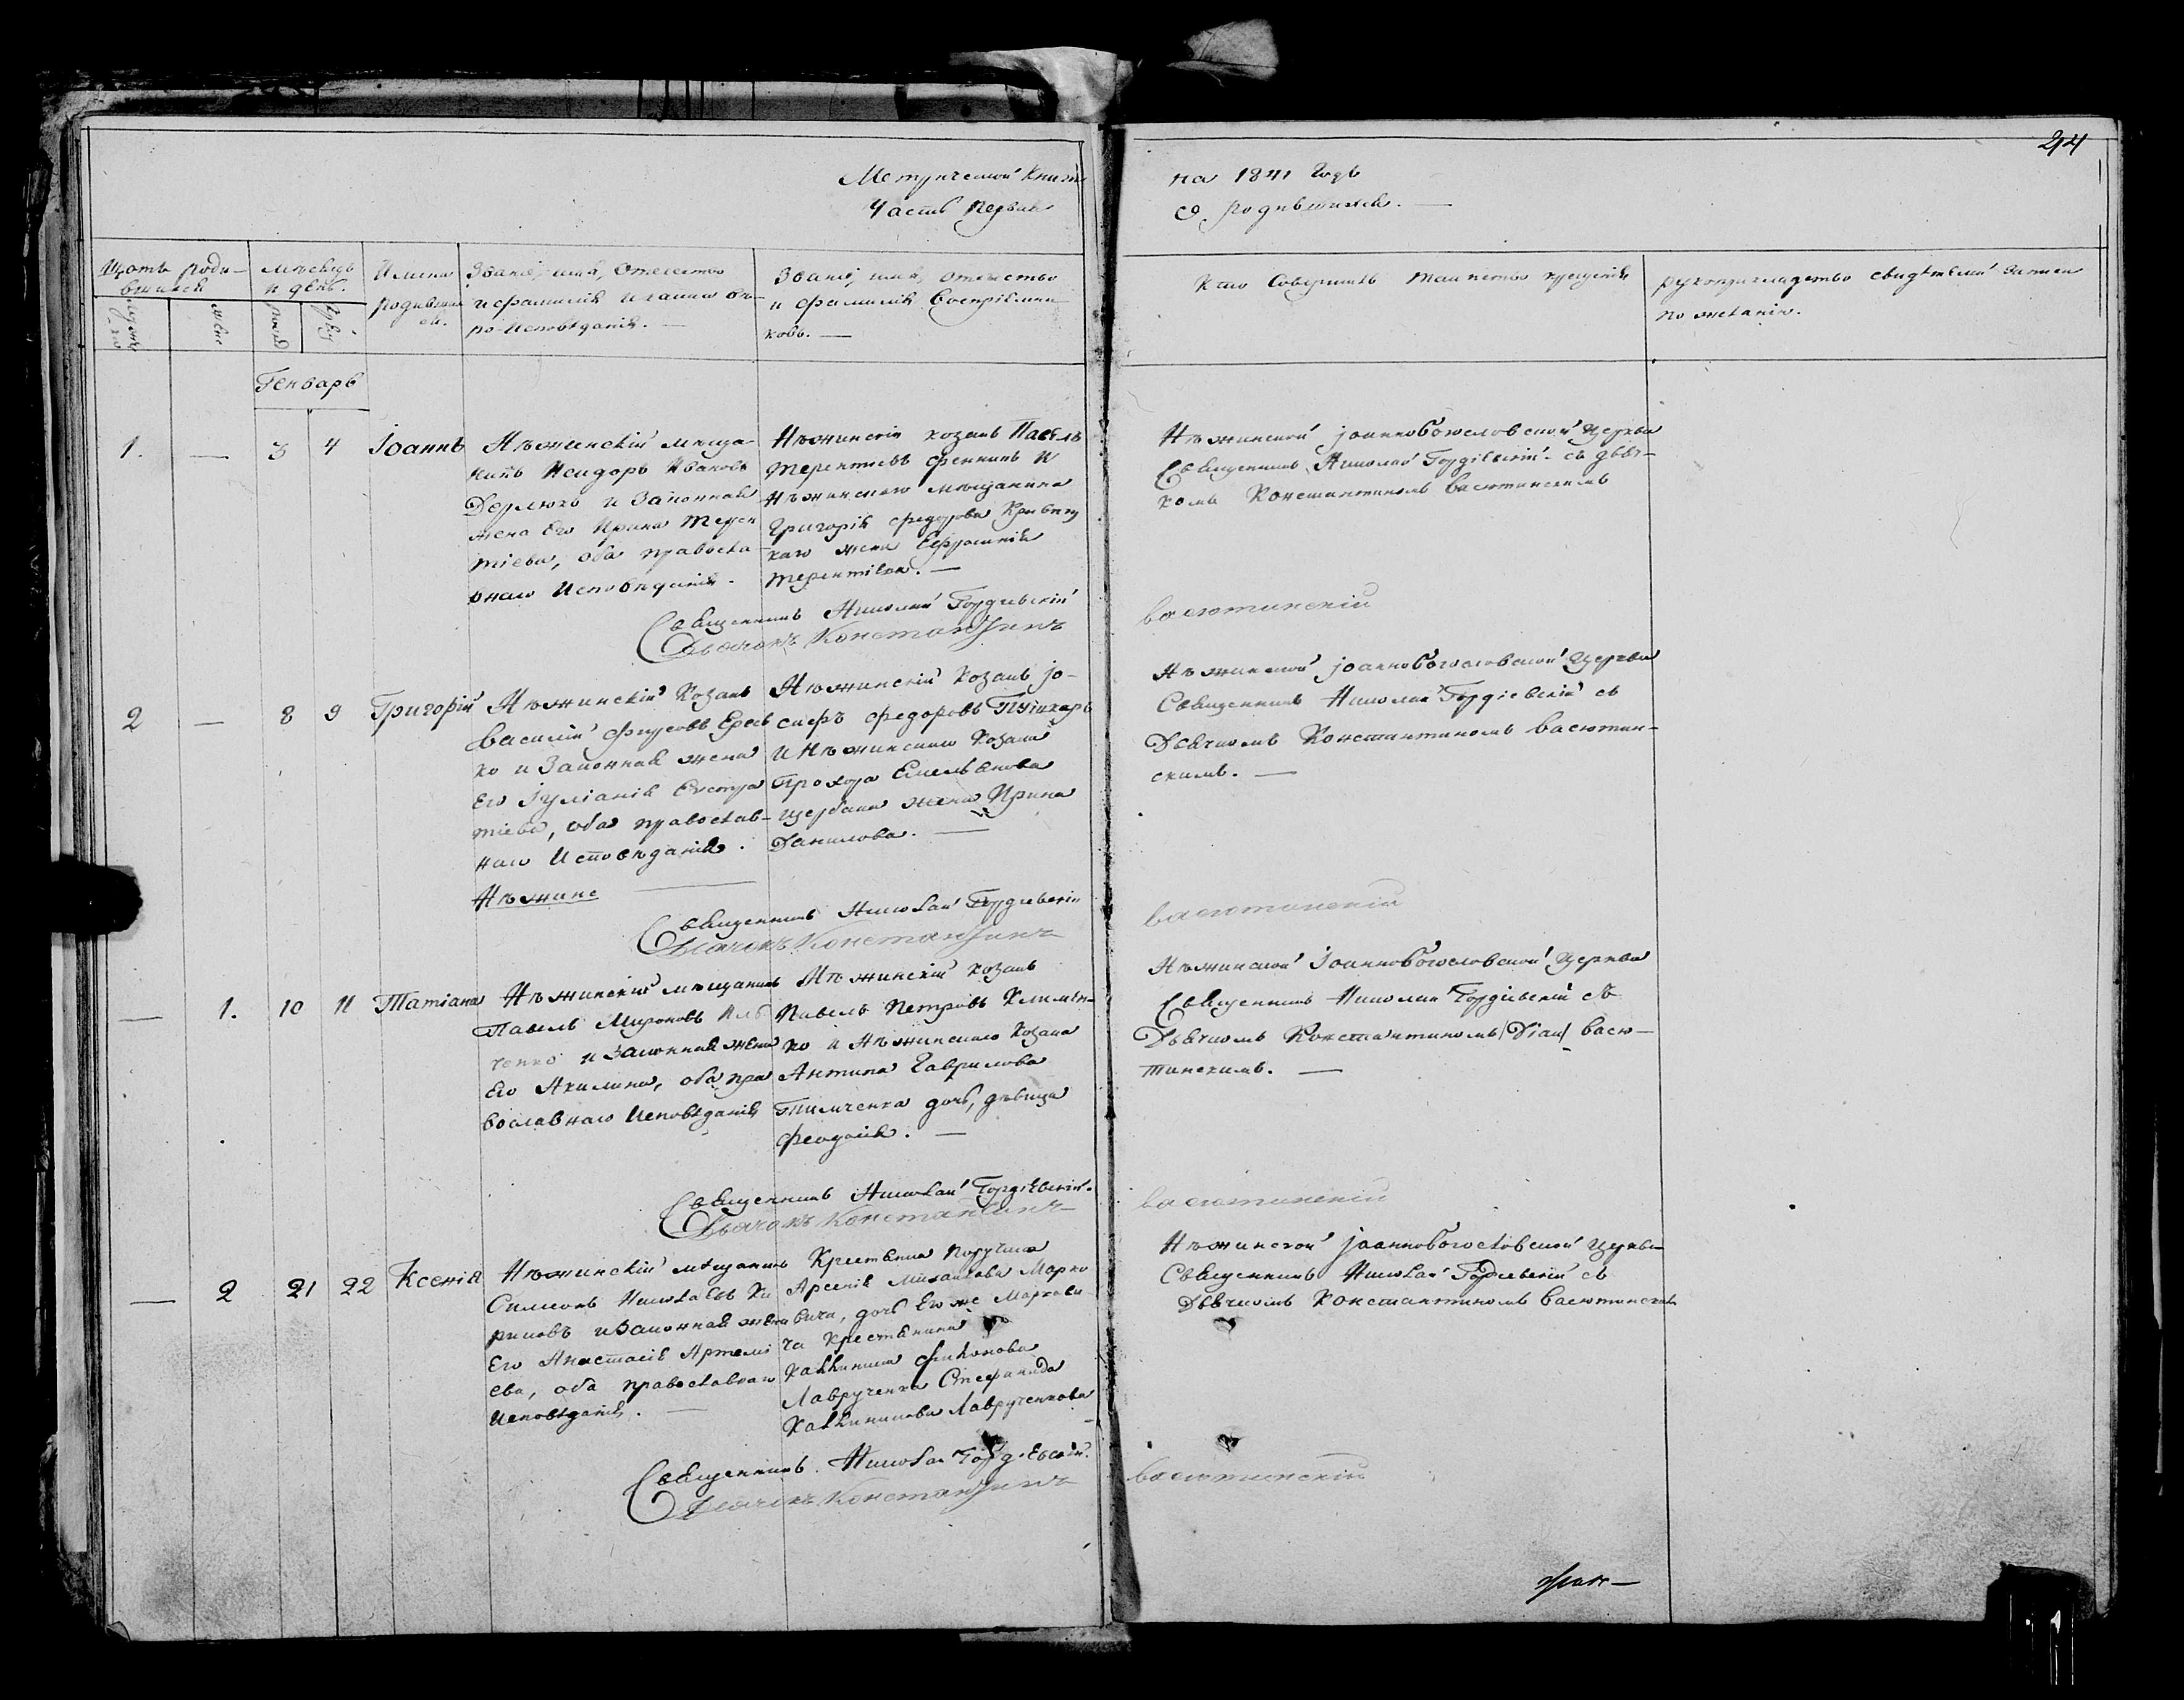 24
Метрической Книги
на 1841 Годъ
Часть Первая
о родившихся. —
Щотъ роди-
вшихся
мѣсяцъ
и день.
Имена
родивших
ся.
Званіе, имя, отечество
и фамилія и какого вѣ-
ро-Исповѣданія. —
Званіе, имя, отечество
и фамилія воспріемни
ковъ. —
Кто Совершалъ таинство крещенія
рукоприкладство свидѣтелей записи
по желанію.
Генварь
1. — 3 4 Іоаннъ
Нѣжинскій мѣща-
нинъ Исидоръ Ивановъ
и Законная
жена Его Ирина Терен
тіева, оба правосла-
внаго Исповѣданія.
Нѣжинскій козакъ Павелъ
Терентіевъ и
Нѣжинскаго мѣщанина
Григорія Федорова
жена Ефросинія
Терентіева. —
Нѣжинской Іоанно Богословской Церкви
Священникъ Николай Гордіевскій съ дьяч-
комъ Константиномъ Васютинскимъ
Священникъ Николай Гордіевскій
Дьячокъ Константинъ
Васютинскій
2 — 8 9 Григорій
Нѣжинскій Козакъ
Василій Фирсовъ
ко и Законная жена
Его Іуліанія Евстра
тіева, оба православ-
наго Исповѣданія.
Нѣжинс
Нѣжинскій Козакъ Іо-
сифъ Федоровъ Пушкарь
и Нѣжинскаго Козака
Прохора Емельянова
Щербака жена Ирина
Данилова. —
Нѣжинской Іоанно Богословской Церкви
Священникъ Николай Гордіевскій съ
Дьячкомъ Константиномъ Васютин-
скимъ. —
Священникъ Николай Гордіевскій
Дьячокъ Константинъ
Васютинскій
— 1. 10 11 Татіана
Нѣжинскій мѣщанинъ
Павелъ Мироновъ
ченко и Законная жена
Его Акилина, оба пра
вославнаго Исповѣданія
Нѣжинскій козакъ
Павелъ Петровъ Климен-
ко и Нѣжинскаго Козака
Антипа Гаврилова
дочь, дѣвица
Феодосія. —
Нѣжинской Іоанно Богословской Церкви
Священникъ Николай Гордіевскій съ
Дьячкомъ Константиномъ Васю-
тинскимъ. —
Священникъ Николай Гордіевскій.
Дьячокъ Константинъ
Васютинскій
— 2 21 22 Ксенія
Нѣжинскій мѣщанинъ
Симеонъ Николаевъ Ки
риловъ и Законная жена
Его Анастасія Артемі
ева, оба православнаго
Исповѣданія. —
Крестьянинъ Поручика
Арсенія Михайлова Марко
вича, дочь Его же Маркови
ча Крестьянина
Калиника
Лаврученка Стефанида
Калиникова Лаврученкова
Нѣжинской Іоанно Богословской Церкви
Священникъ Николай Гордіевскій съ
Дьячкомъ Константиномъ Васютинскимъ
Священникъ Николай Гордіевскій.
Дьячокъ Константинъ
Васютинскій